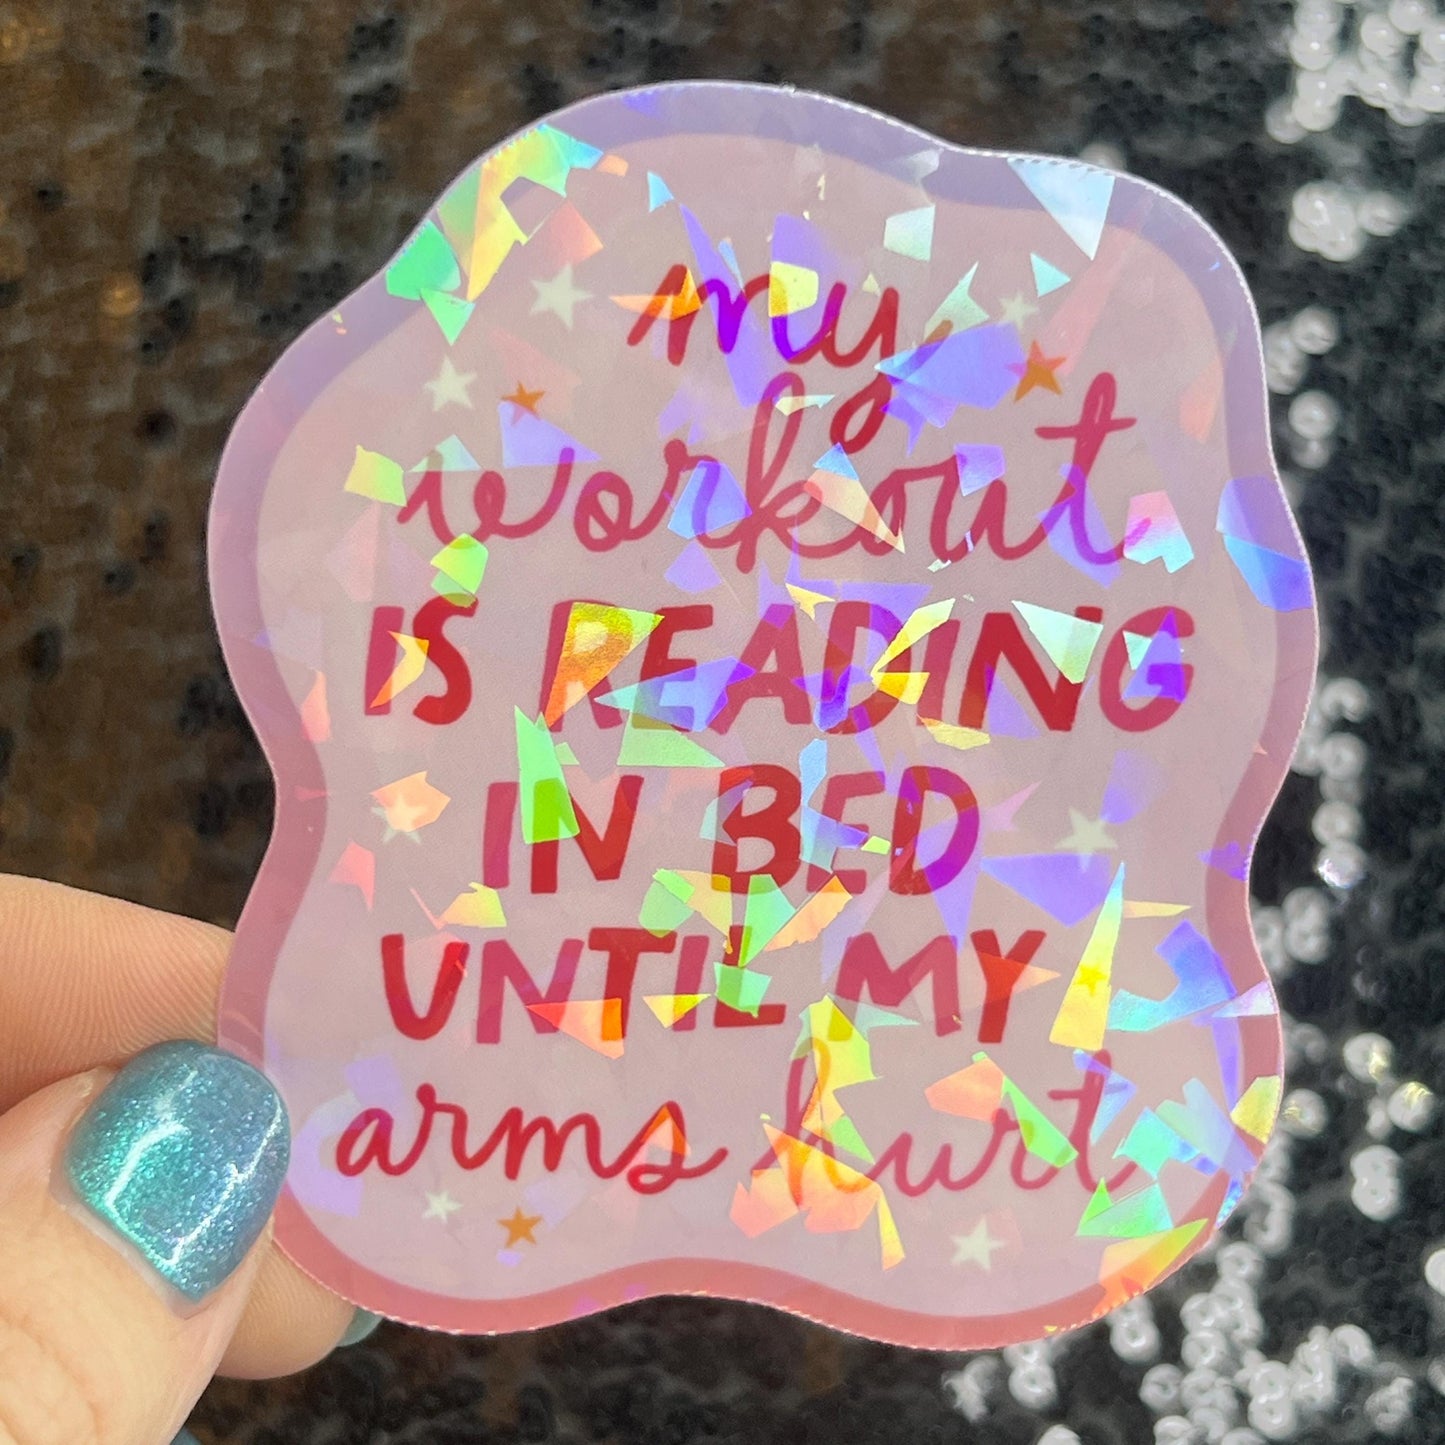 my
workout
IS READING
IN BED
UNTIL MY
arms hurt